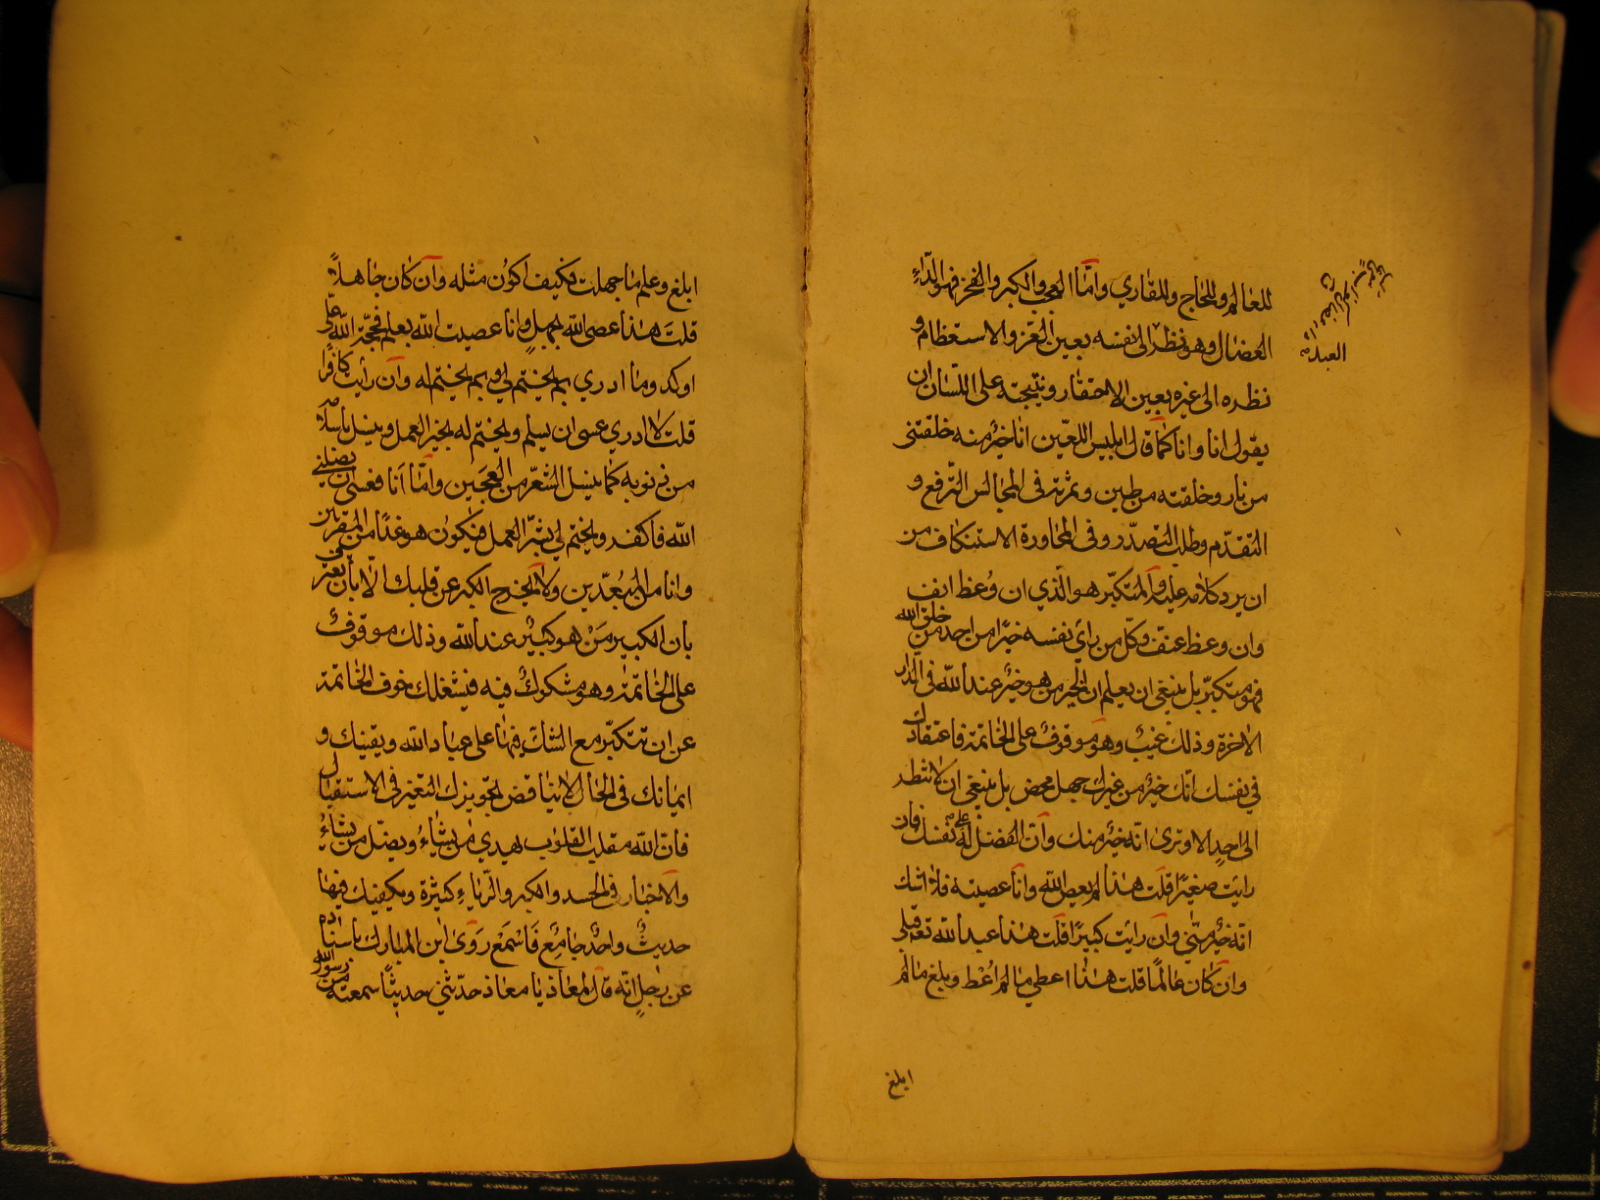 للعالم وللحاج وللقاري وامّا العجب والكبر والفخر فهو الدّاءِ
العضال وهو نظر الى نفسه بعين العزّ والاستعظام و
نظره الى غيره بعين الاحتقار ونتيجته على اللسان ان
يقول انا وانا كما قال ابليس اللعين انا خير منه خلقتنى
من نار وخلقته من طين وثمرته فى المجالس الترفع و
التقدّم وطلب التصدّر وفى المحاورة الاستنكاف من
ان يرد كلامه عليه والمتكبّر هو الّذي ان وُعظ انف
وان وعظ عنف وكلّ من رأى نفسه خيرًا من احد من خلق الله
فهو متكبّر بل ينبغى ان يعلم ان الخير من هو خيرٌ عند الله فى الدار
الاخرة وذلك غيبٌ وهو موقوفٌ على الخاتمة فاعتقادك
في نفسك انّك خيرٌ من غيرك جهل محض بل ينبغى ان لا تنظر
الى احدٍ الا وترى انّه خيرٌ منك وانّ الفضل له على نفسك فان
رايت صغيرًا قلت هذا لم يعص الله وانا عصيته فلا اشك
انّه خير منّي وان رايت كبيرًا قلت هذا عبد الله تعالى قبلي
وان كان عالمًا قلت هذا اعطي ما لم اُعْط وبلغ ما لم
ابلغ
العبد
ابلغ وعلم ما جهلت فكيف اكون مثله وان كان جاهلاً
قلت هذا عصى الله بجهلٍ وانا عصيت الله بعلم فحجّة الله علىّ
اوكد وما ادري بم يختم لي وبم يختم له وان رأيت كافرًا
قلت لا ادري عسى ان يسلم ويختم له بخير العمل وينسل باسلامه
من ذنوبه كما ينسل الشعر من العجين وامّا اَنا فعسى ان يضلني
الله فاكفر ويختم لي بشرّ العمل فيكون هو غدًا من المقربين
وانا من المبُعدّين ولا يخرج الكبر عن قلبك الّا بان تعرف
بان الكبير مَنْ هو كبيرٌ عند الله وذلك موقوفٌ
على الخاتمة وهو مشكوكٌ فيه فيشغلك خوف الخاتمة
عن ان تتكبّر مع الشك فيها على عباد الله ويقينك و
ايمانك فى الحال لا يناقض تجويزك التغير فى الاستقبال
فان الله مقلب القلوب يهدي من يشاءُ ويضلّ من يشاءُ
والاخبار فى الحسد والكبر والرّياءِ كثيرة ويكفيك فيها
حديثٌ واحدٌ جامِعٌ فَاسْمَع رَوَى ابن المبارك باسناده
عن رجلٍ انّه قال لمعاذ يا معاذ حدّثني حديثًا سمعته من رسول الله